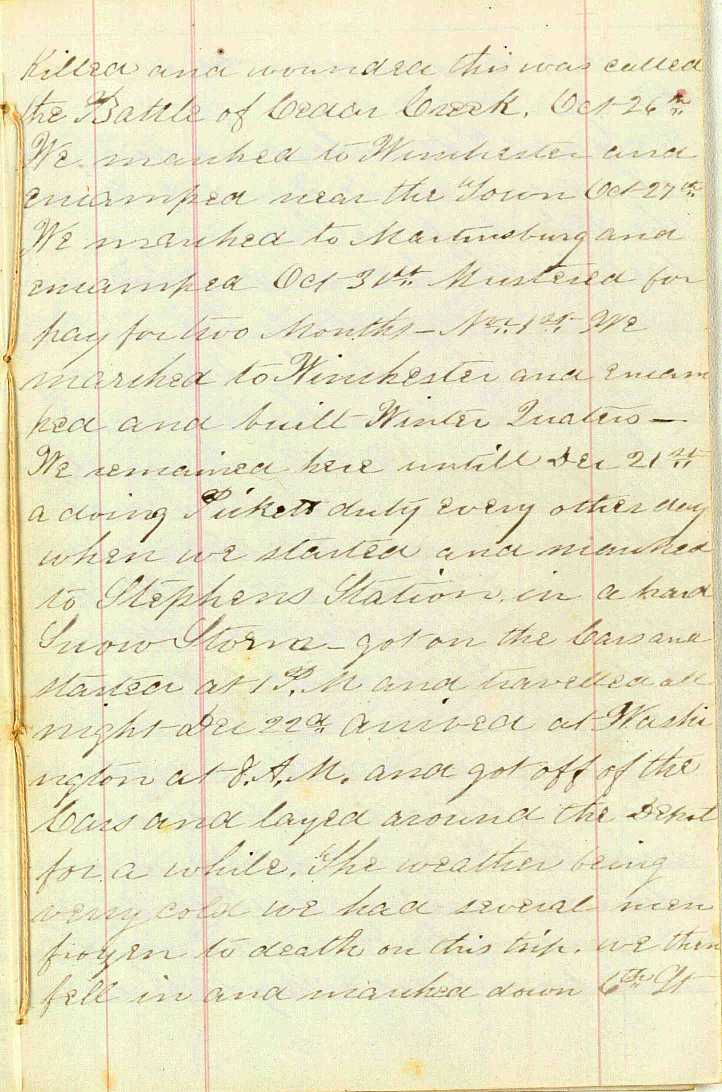 Killed and wounded this was called
the Battle of Cedar Creek. Oct 26th
We marched to Winchester and
encamped near the Town Oct 27th
We marched to Martinsburg and
encamped Oct 31st Mustered for
pay for two Months – Nov. 1st We
marched to Winchester and encam
ped and built Winter Quaters —
We remained here untill Dec 21st
a doing Pickett duty every other day
when we started and marched
to Stephens Station in a hard
Snow Storm – got on the Cars and
started at 1 P.M and travelled all
night Dec 22d arrived at Washi
ngton at 8. A. M. and got off of the
Cars and layed around the Depot
for a while. The weather being
verry cold we had several men
frozen to death on this trip. we then
fell in and marched down 6th St